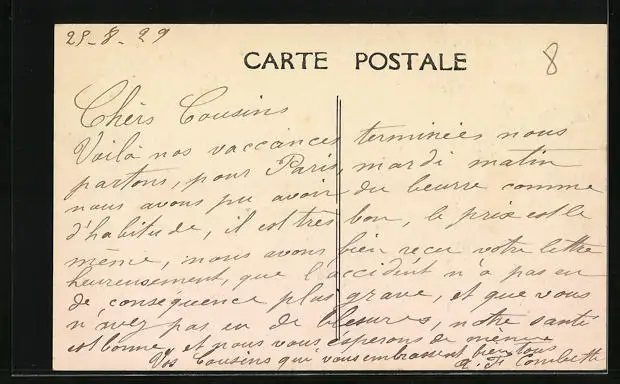 25-8-29
CARTE POSTALE
8
Chèrs Cousins
Voilà nos vaccances terminées nous
partons, pour Paris, mardi matin
nous avons pu avoir du beurre comme
d'habitude, il est très bon, le prix est le
même, nous avons bien reçu votre lettre
heureusement, que l'accident n'a pas eu
de, consequence plus grave, et que vous
n'avez pas eu de blesures, notre santé
est bonne, et nous vous esperons de meme
Vos Cousins qui vous embrassent bien tous